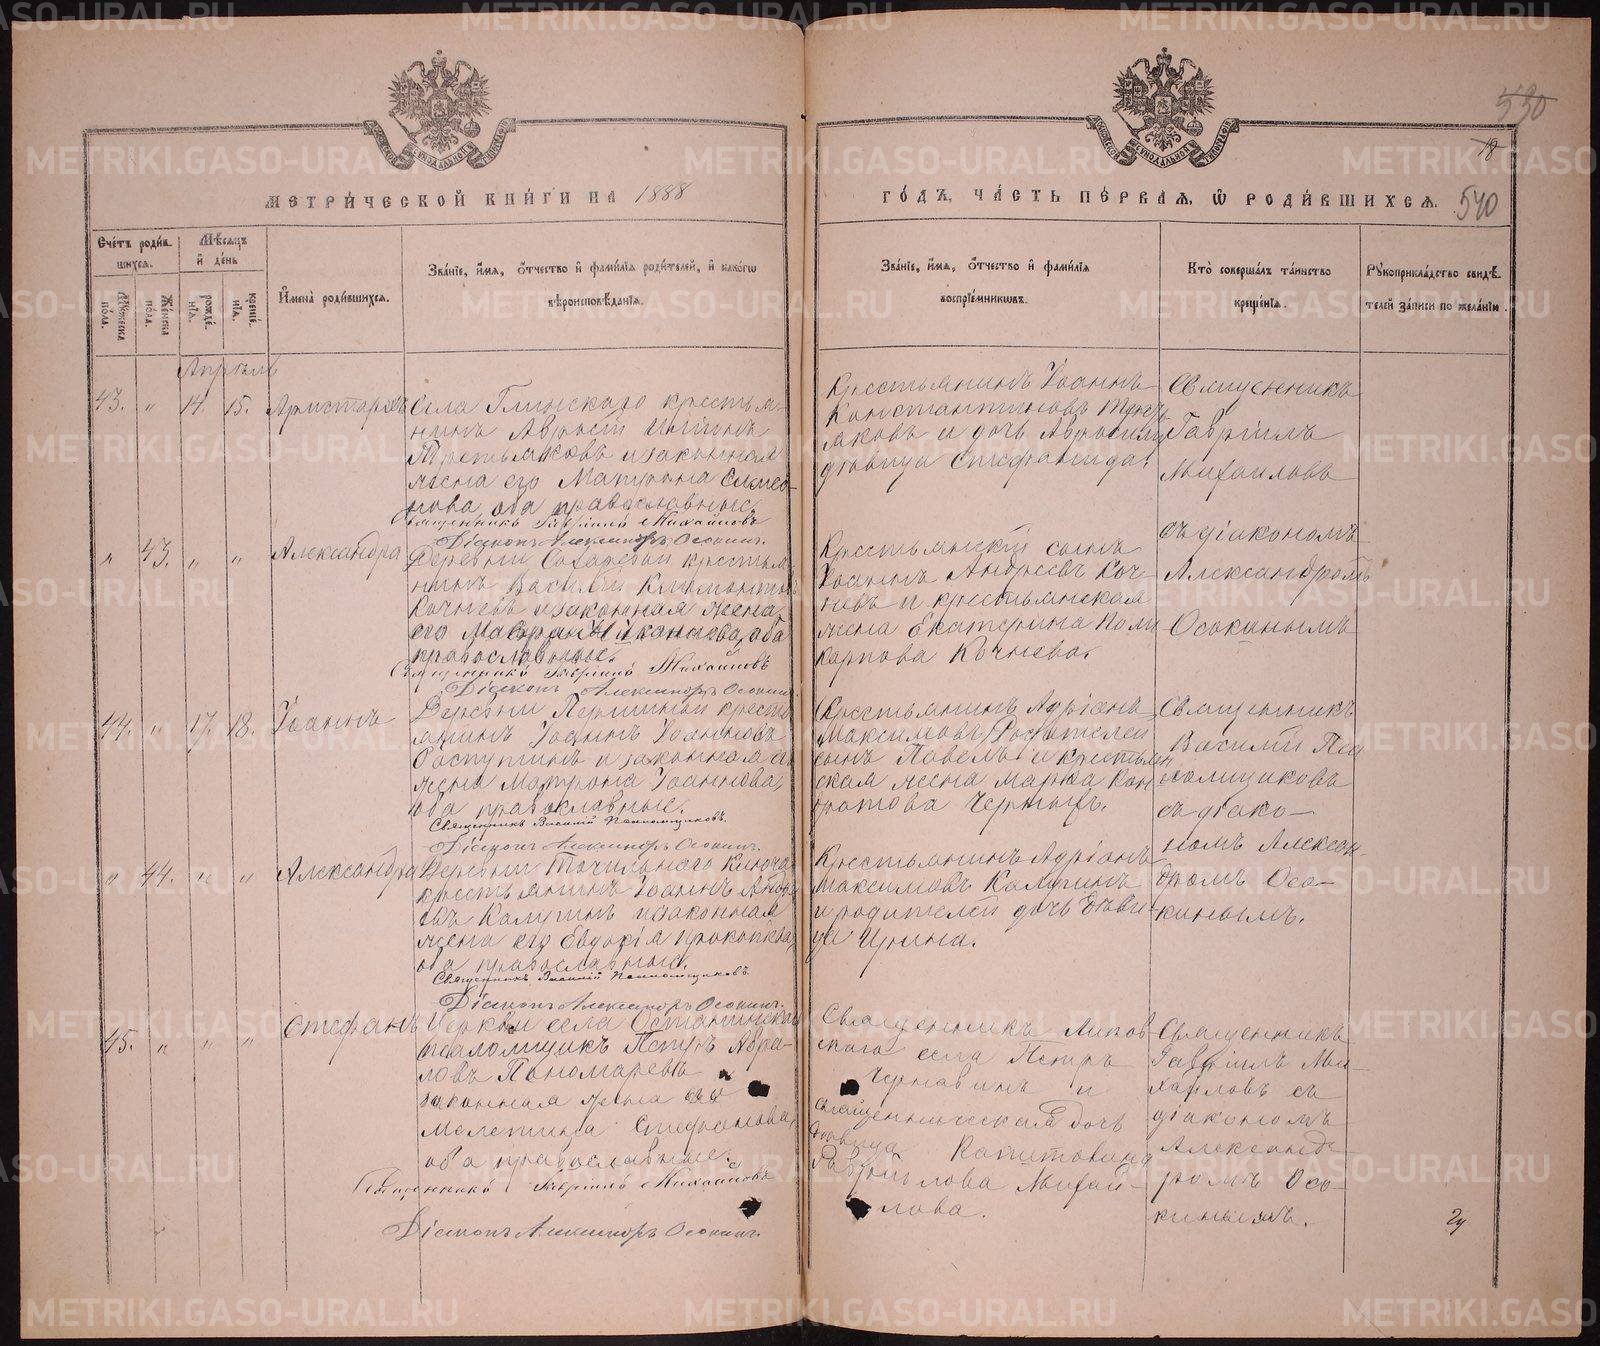 530
18
МЕТРИ́ЧЕСКОЙ КНИ́ГИ НА 1888
ГО́ДЪ, ЧА́СТЬ ПЕ́РВАѦ, Ѡ РОДИ́ВШИХСѦ.
540
Сче́тъ роди́в-
шихся.
Мѣ́сяцъ
и де́нь
Му́жеска по́ла.
Же́нска по́ла.
рожде́нїя.
креще́нїя.
Имена̀ роди́вшихся.
Зва́нїе, и́мя, о́тчество и фами́лїя роди́телей, и како́гѡ
вѣроисповѣ́данїя.
Зва́нїе, и́мя, о́тчество и фами́лїя
воспрїе́мниковъ.
Кто̀ соверша́лъ та́инство
креще́нїя.
Рꙋкоприкла́дство свидѣ́-
телей за́писи по жела́нїю.
Апрѣль
43. „ 14. 15. Аристархъ
Села Глинскаго крестья-
нинъ
Третьяковъ и законная
жена его Матрона Симео-
нова, оба православные.
Священникъ Гавріилъ Михайловъ
Діаконъ Александръ Осокинъ.
Крестьянинъ Іоаннъ
Константиновъ Треть-
яковъ и дочь
дѣвица Стефанида.
Священникъ
Гавріилъ
Михаиловъ
съ діакономъ
Александромъ
Осокинымъ
„ 43. „ „ Александра
Деревни крестья-
нинъ Василій
Кочневъ и законная жена
его оба
православные.
Священникъ Гавріилъ Михайловъ
Діаконъ Александръ Осокинъ.
Крестьянскій сынъ
Іоаннъ Андреевъ Коч-
невъ и крестьянская
жена Екатерина Поли-
карпова Кочнева.
44. „ 17. 18. Іоаннъ
Деревни Першиной кресть-
янинъ Іоаннъ Іоанновъ
и законная его
жена Матрона Іоаннова,
оба православные.
Священникъ Василій Пономщиковъ.
Діаконъ Александръ Осокинъ.
Крестьянинъ Адріанъ
Максимовъ
сынъ Павелъ и крестьян-
ская жена Марѳа Кон-
дратова Черныхъ.
Священникъ
Василій
съ діако-
номъ Алексан-
дромъ Осо-
кинымъ.
„ 44. „ „ Александра
Деревни Точильнаго Ключа
крестьянинъ Іоаннъ
Калугинъ и законная
жена его Евдокія Прокопьева,
оба православные.
Священникъ Василій Пономщиковъ.
Діаконъ Александръ Осокинъ.
Крестьянинъ Адріанъ
Максимовъ Калугинъ
и родителей дочь дѣви-
ца Ирина.
45. „ „ „ Стефанъ
Церкви села Останинскаго
псаломщикъ Петръ
Пономаревъ
законная жена его
Стефанова,
оба православные.
Священникъ Гавріилъ Михайловъ
Діаконъ Александръ Осокинъ.
Священникъ Липов-
скаго села Петръ
Чернавинъ и
священническая дочь
дѣвица Капитолина
Гавріилова Михай-
лова.
Священникъ
Гавріилъ Ми-
хайловъ съ
діакономъ
Александ-
ромъ Осо-
кинымъ.